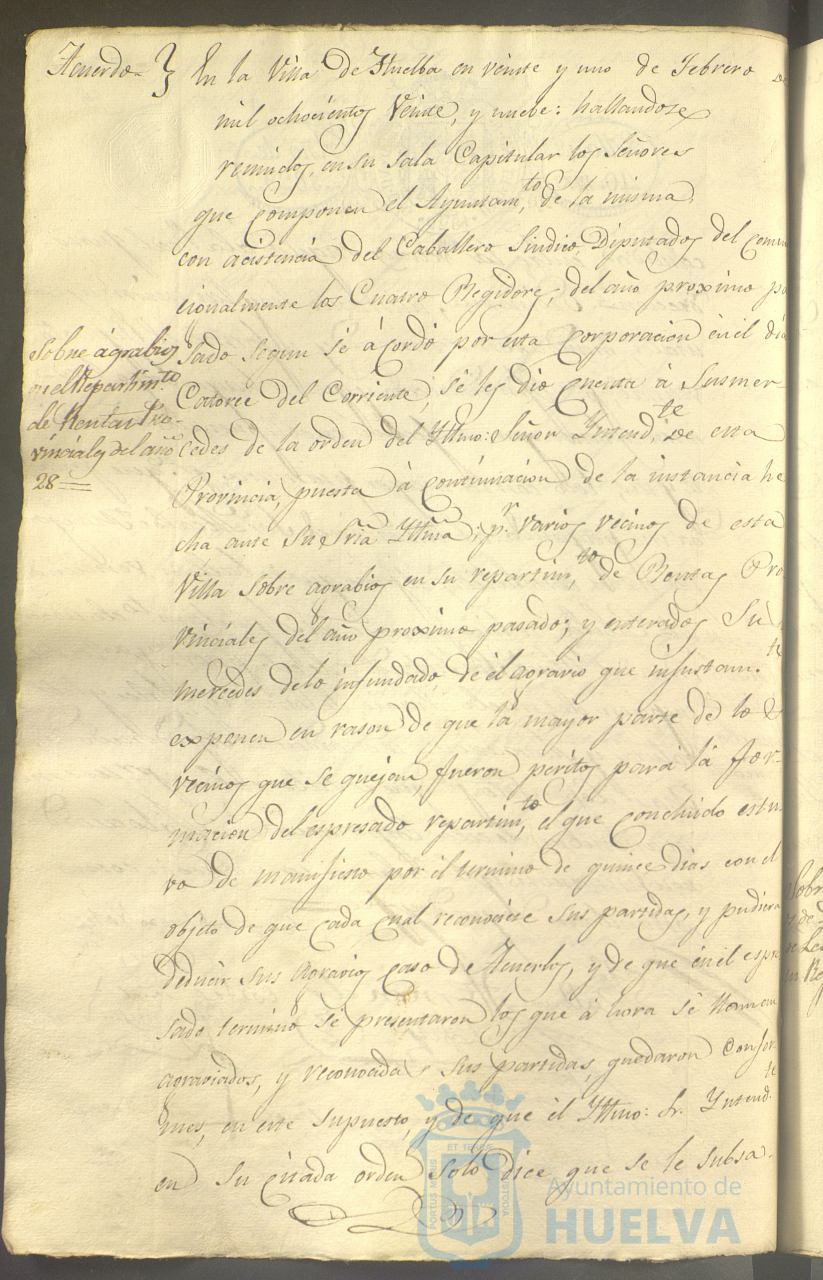 Acuerdo
En la Villa de Huelba en veinte y uno de Febrero de
mil ochocientos Veinte, y nuebe: hallandose
reunidos, en su sala Capitular los Señores
que componen el Ayuntam.to, de la misma,
con acistencia del Caballero Sindico, Diputados del comun
cionalmente los Cuatro Regidores, del año proximo pa
sado segun se á cordó por esta corporacion en el dia
Catorce del Corriente, se les dio cuenta á Susmer
cedes de la orden del Yltmo: Señor Yntend.te de esta
Provincia, puesta á continuacion de la instancia he
cha ante Su Sria Yltma, p.r varios vecinos de esta
Villa sobre agrabios en su repartim.to, de Rentas Pro
vinciales del año proximo pasado; y enterados Su
mercedes delo infundado, de él agravio que injustam.te
exponen en rason de que la mayor parte de lo
vecinos que se quejan, fueron peritos para la for-
macion del espresado repartim.to, el que concluido estu
vo de manifiesto por el termino de quince dias con el
objeto de que cada cual reconociese sus partidas, y pudiera
deducir sus Agravios caso de Tenerlos, y de que en el espre
sado termino se presentaron los que á hora se llaman
agraviados, y reconocidas sus partidas, quedaron confor
mes, en este supuesto, y de que el Yltmo: Sr. Yntend.te
en su citada orden solo dice que se le subsa-
Sobre ágrabios
en el Repartim.to
de Rentas Pro-
vinciales del año
28
Sobre
Ayuntamiento de
HUELVA